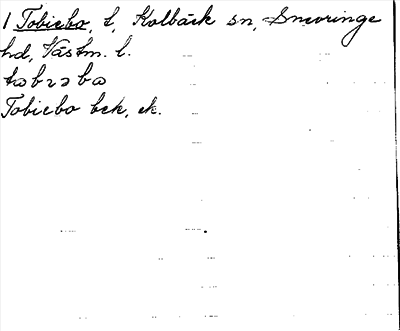 1 Tobiebo, t, Kolbäck sn, Snevringe
hd, Västm. l.
Tobiebo bek, ek.